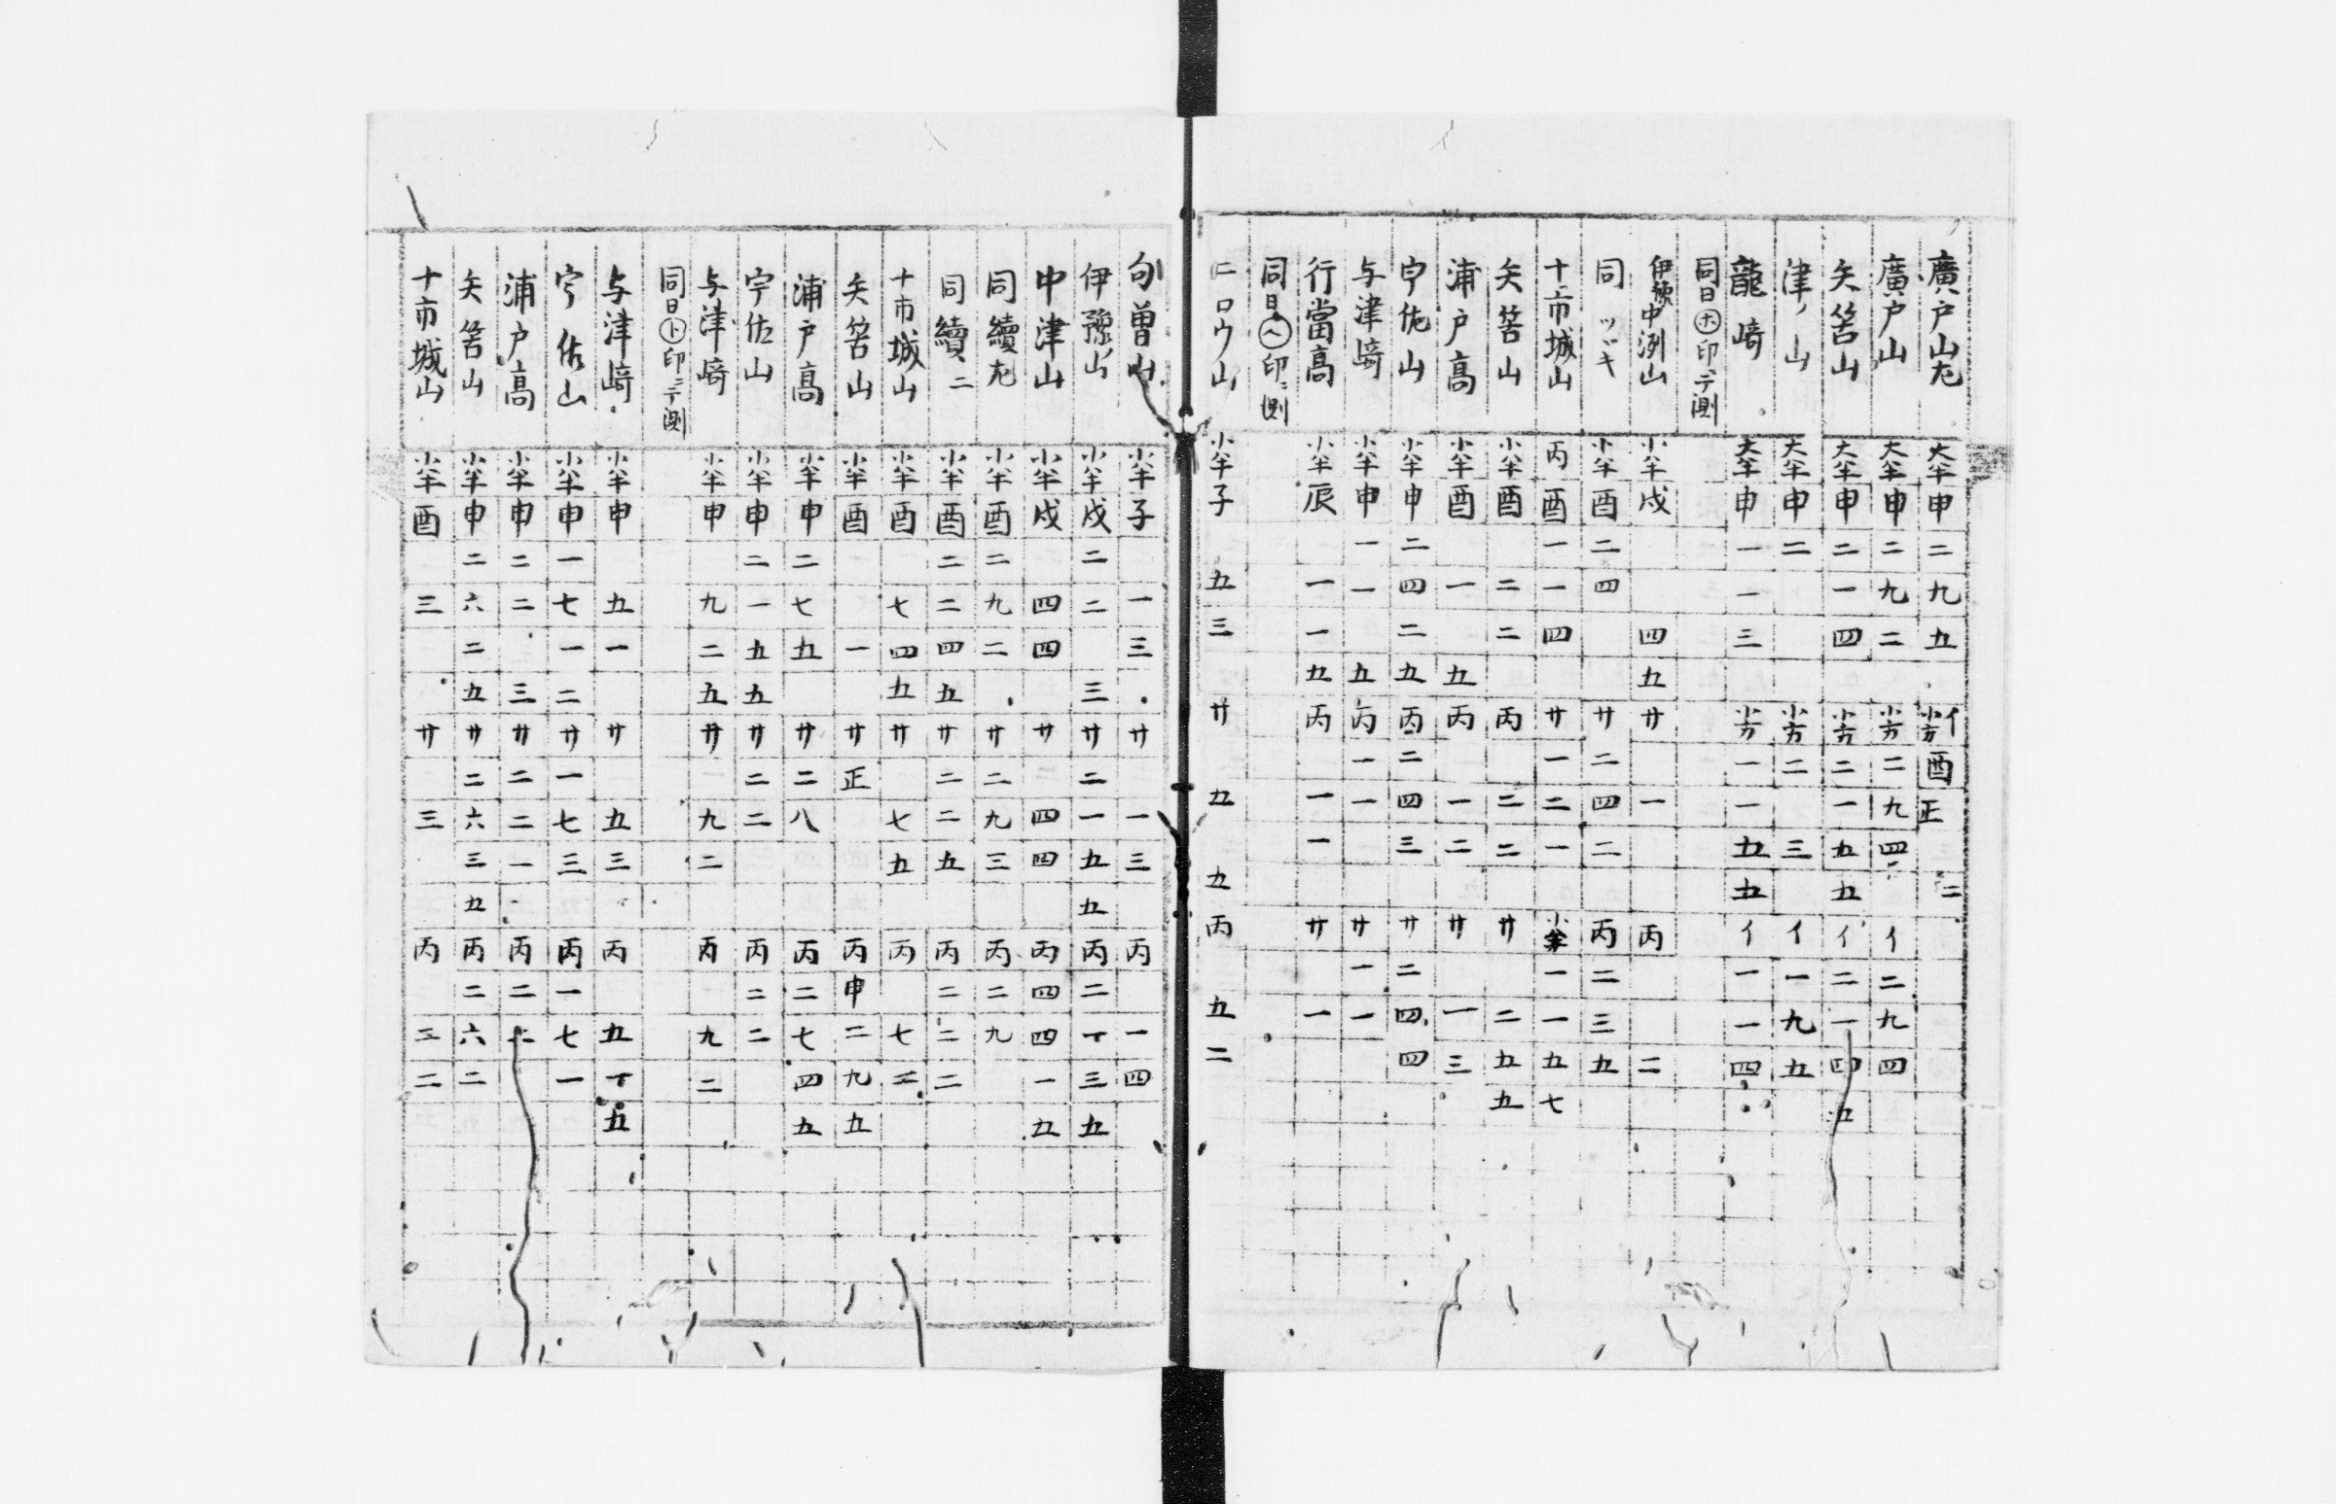 廣戸山尢 大半申 二九五 小方イ酉正 二
廣戸山 大半申 二九二 小方二九四 イ二九四
矢筈山 大半申 二一四 小方二一五五 イ二一四五
津ノ山 大半申 二 小方二 三 イ一九五
龍﨑 大半申 一一三 小方一一五五 イ一一四
同日㋭印ニテ測
伊豫中洌山 小半戌 四五 廿 一 丙 二
同 ツヾキ 小半酉 二四 廿二四二 丙二三五
十市城山 丙酉 一一四 廿一二一 小半一一五七
矢筈山 小半酉 二二 丙 二二 廿 二五五
浦戸高 小半酉 一 五 丙 一二 廿 一三
宇佐山 小半申 二四二五 丙二四三 廿二四四
与津﨑 小半申 一一 五 丙一一 廿一一
行當高 小半辰 一一五 丙 一一 廿 一
同日㋬印ニ測
ニロウ山 小半子 五三 廿 五 五 丙 五二
曽山 小半子 一三 廿 一三 丙 一四
伊豫山 小半戌 二二 三 廿二一五五 丙二一三五
中津山 小半戌 四四 廿 四四 丙四四一五
同續尢 小半酉 二九二 廿二九三 丙二九
同續二 小半酉 二二四五 廿二二五 丙二二二
十市城山 小半酉 七四五 廿 七五 丙 七
矢筈山 小半酉 一 廿正 丙申二九五
浦戸高 小半申 二七五 廿二八 丙二七四五
宇佐山 小半申 二一五五 廿二二 丙二二
与津﨑 小半申 九二五 廿 九二 丙 九二
同日㋣印ニテ測
与津﨑 小半申 五一 廿 五三 丙 五一五
宇佐山 小半申 一七一二 廿一七三 丙一七一
浦戸高 小半申 二二 三 廿二二一 丙二
矢筈山 小半申 二六二五 廿二六三五 丙二六二
十市城山 小半酉 三 廿 三 丙 二二